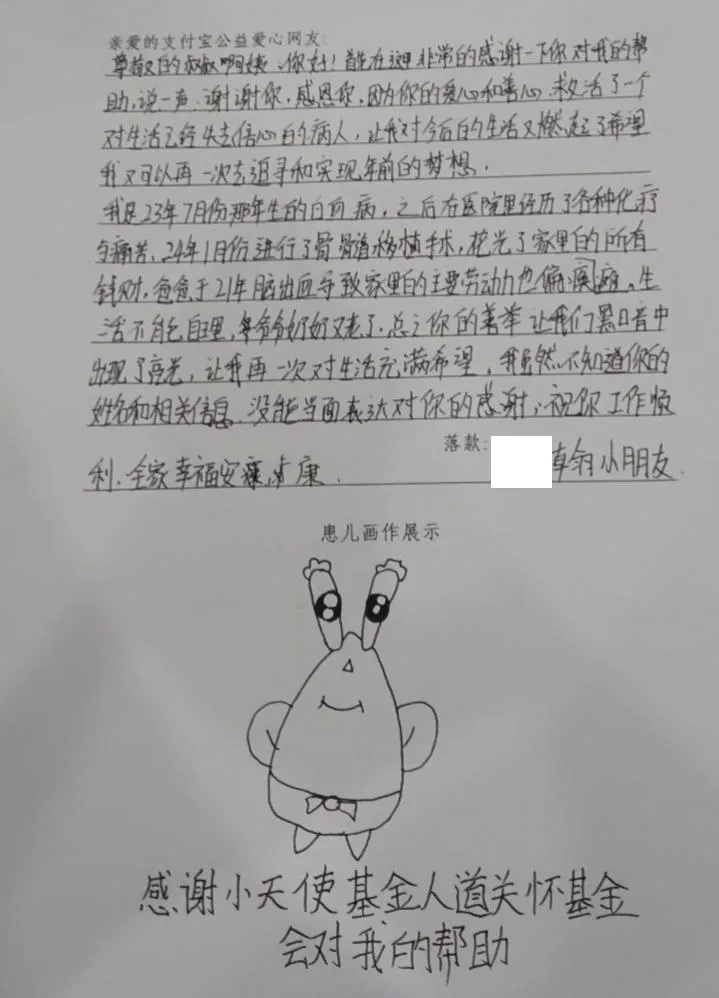 亲爱的支付宝公益爱心网友:
尊敬的叔叔啊姨、你好!首先在这里非常的感谢一下你对我的帮
助,说一声.谢谢你,感恩你,因为你的爱心和善心.救活了一个
对生活已经失去信心的病人,让我对今后的生活又燃起了希望
我又可以再一次去追寻和实现年前的梦想.
我是23年7月份那年生的白血病,之后在医院里经历了各种化疗
与痛苦,24年1月份进行了骨髓移植手术,花光了家里的所有
钱财,爸爸于21年脑出血导致家里的主要劳动力也偏瘫。生
活不能自理,爷爷奶奶又老了.总之你的善举让我们黑暗中
出现了亮光,让我再一次对生活充满希望,我虽然不知道你的
姓名和相关信息.没能当面表达对你的感谢,祝你工作顺
落款: 小朋友.
利.全家幸福安康,健康.
患儿画作展示
感谢小天使基金人道关怀基金
会对我的帮助